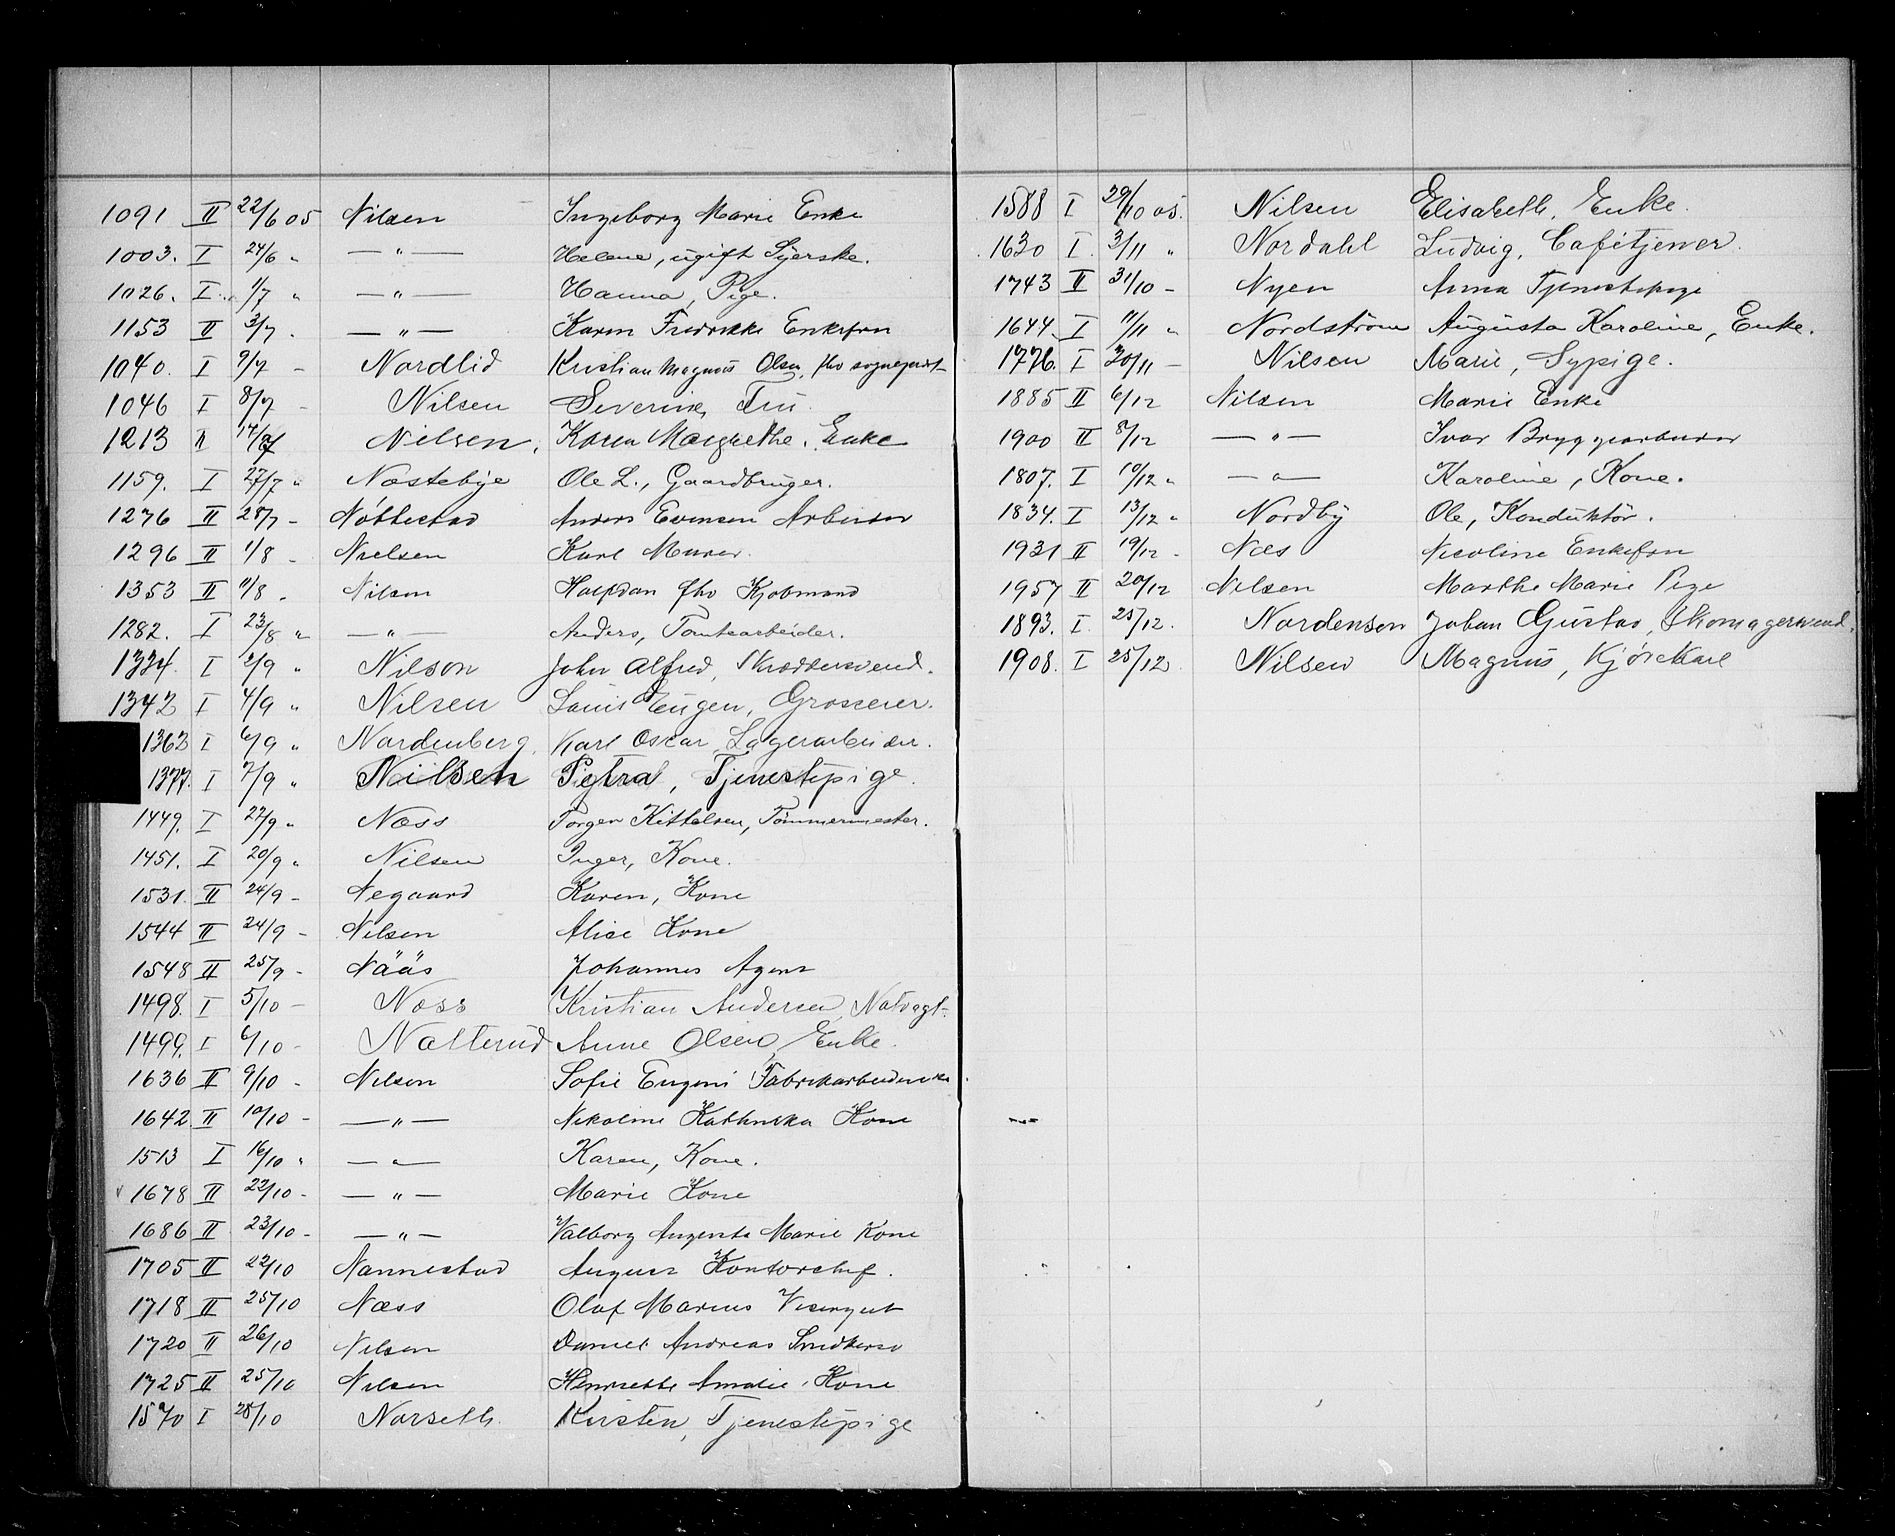 1091 II 22/6 05 Nilsen Ingeborg Marie Enke
1003. I 24/6 „ —„— Helene, ugift Syerske.
1026. I 1/7 „ —„— Hanna, Pige.
1153 II 3/7 . —„— Karen Fredrikke Enkefru
1040. I 9/7 - Nordlid Kristian Magnus Olsen, fhv sogneprest
1046 I 8/7 - Nilsen Severine, Fru.
1213 II 14/7 Nilsen, Karen Margrethe, Enke
1159. I 27/7 „ Næstebye Ole L., Gaardbruger.
1276 II 28/7 - Nøttestad Anders Evensen Arbeider
1296 II 1/8 - Nielsen Karl Murer
1353 II 11/8 . Nilsen Halfdan fhv Kjøbmand
1282. I 23/8 „ —„— Anders, Tomtearbeider.
1334. I 2/9 „ Nilson John Alfred, Skræddersvend.
1342 I 4/9 „ Nilsen Louis Eugen, Grosserer.
1362 I 6/9 „ Nordenberg, Karl Oscar, Lagerarbeider.
1377. I 7/9 „ Nilsen Petra, Tjenestepige.
1449. I 22/9 „ Næss Torger Kittelsen, Tømmermester.
1451. I 20/9 „ Nilsen Inger, Kone.
1531. II 24/9 - Negaard Karen, Kone
1544 II 24/9 - Nilsen Alice Kone
1548 II 25/9 - Nääs Johannes Agent
1498. I 5/10 - Næss Kristian Andersen, Natvagt.
1499. I 6/10 - Natterud Anne Olsen, Enke.
1636 II 9/10 - Nilsen Sofie Eugeni Fabrikarbeiderske
1642 II 10/10 - —„— Nikoline Kathinka Kone
1513 I 16/10 „ —„— Karen, Kone.
1678 II 22/10 - —„— Marie Kone
1686 II 23/10 - —„— Valborg Augusta Marie Kone
1705 II 22/10 Nannestad August Kontorchef.
1718 II 25/10 Næss Olaf Marius Visergut
1720 II 26/10 Nilsen Daniel Andreas
1725 II 25/10 Nilsen Henriette Amalie, Kone
1570 I 28/10 Norseth. Kirsten, Tjenestepige
1588 I 29/10 05. Nilsen Elisabeth, Enke.
1630 I. 3/11 „ Nordahl Ludvig, Cafétjener.
1743 II 31/10 - Nyen Anna Tjenestepige
1644. I 11/11 „ Nordstrøm Augusta Karoline, Enke.
1776. I 30/11 - Nilsen Marie, Sypige.
1885 II 6/12 Nilsen Marie Enke
1900 II 8/12 —„— Ivar Bryggearbeider
1807. I 10/12 „ —„— Karoline, Kone.
1834. I 13/12 „ Nordby Ole, Konduktør.
1931 II 19/12 - Næs Nicoline Enkefru
1957 II 20/12 Nilsen Marthe Marie Pige
1893. I. 25/12. Nordensen Johan Gustav, Skomagersvend.
1908. I 25/12. Nilsen Magnus, Kjørekarl